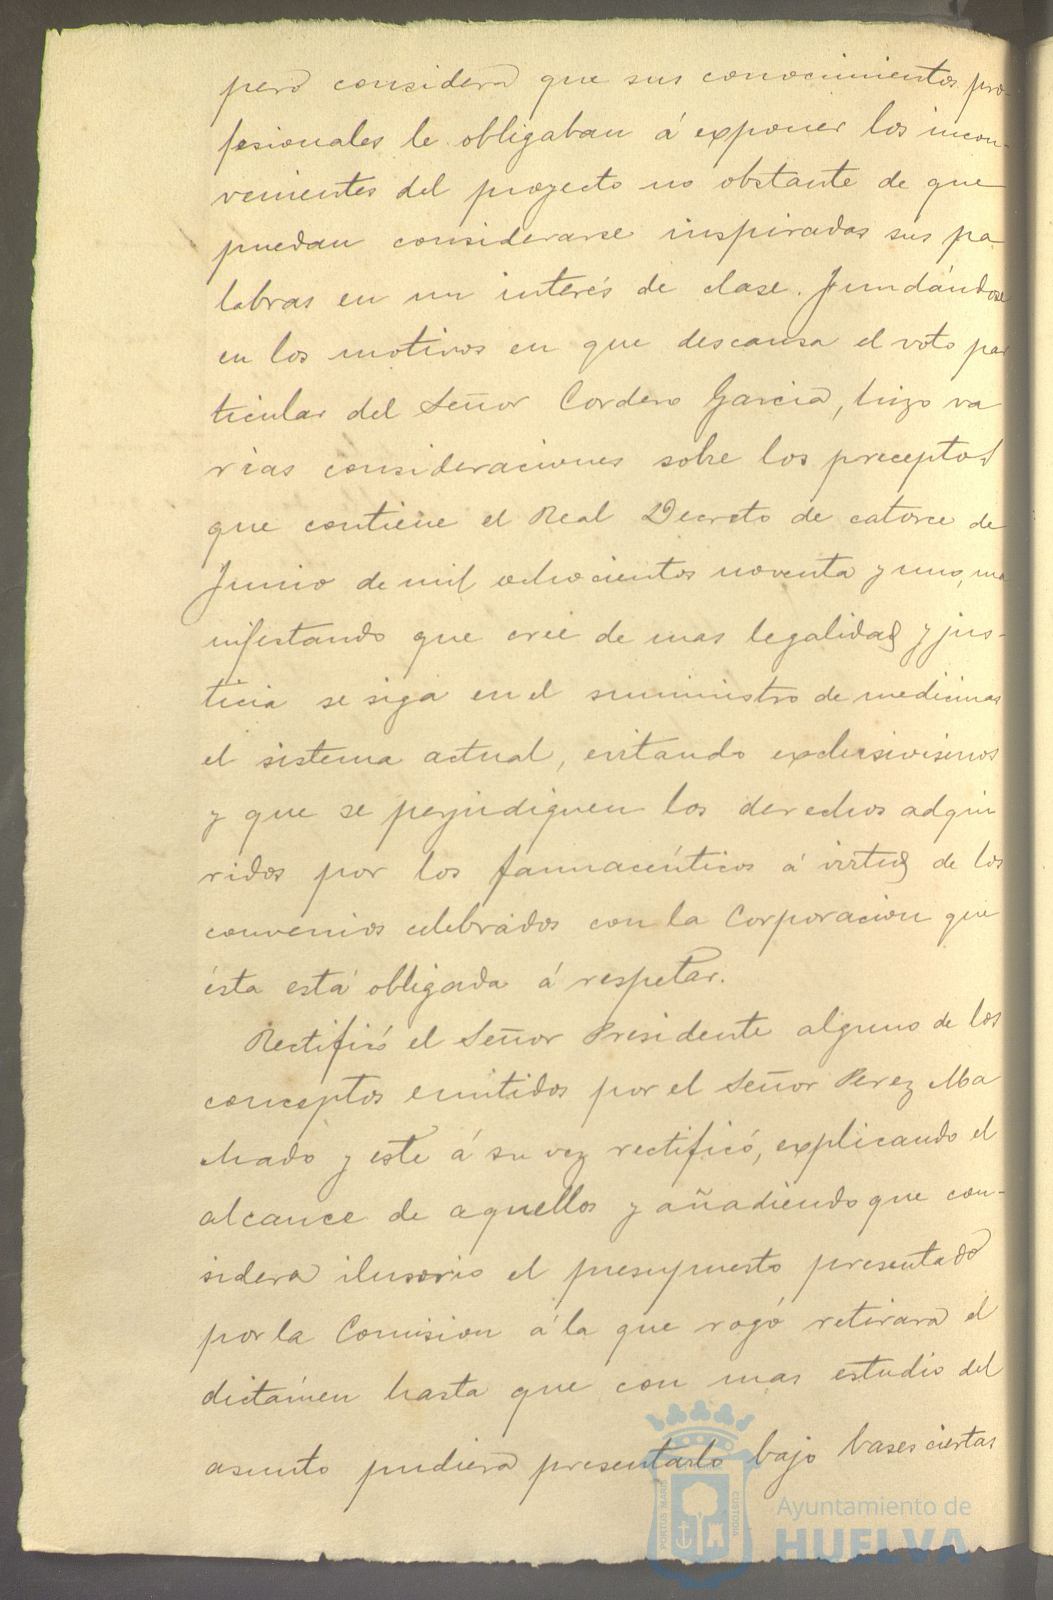 pero considera que sus conocimientos pro-
fesionales le obligaban á exponer los incon-
venientes del proyecto no obstante de que
puedan considerarse inspiradas sus pa
labras en un interés de clase. Fundándose
en los motivos en que descansa el voto par
ticular del Señor Cordero Garcia, hizo va
rias consideraciones sobre los preceptos
que contiene el Real Decreto de catorce de
Junio de mil ochocientos noventa y uno, ma
nifestando que cree de mas legalidad y jus-
ticia se siga en el suministro de medicinas
el sistema actual, evitando exclusivismos
y que se perjudiquen los derechos adqui
ridos por los farmacéuticos á virtud de los
convenios celebrados con la Corporacion que
ésta está obligada á respetar.
Rectificó el Señor Presidente alguno de los
conceptos emitidos por el Señor Perez Ma
chado y éste á su vez rectificó, explicando el
alcance de aquellos y añadiendo que con-
sidera ilusorio el presupuesto presentado
por la Comision á la que rogó retirara el
dictámen hasta que con mas estudio del
asunto pudiera presentarlo bajo bases ciertas
PORTUS MARIS
CUSTODIA
Ayuntamiento de
HUELVA